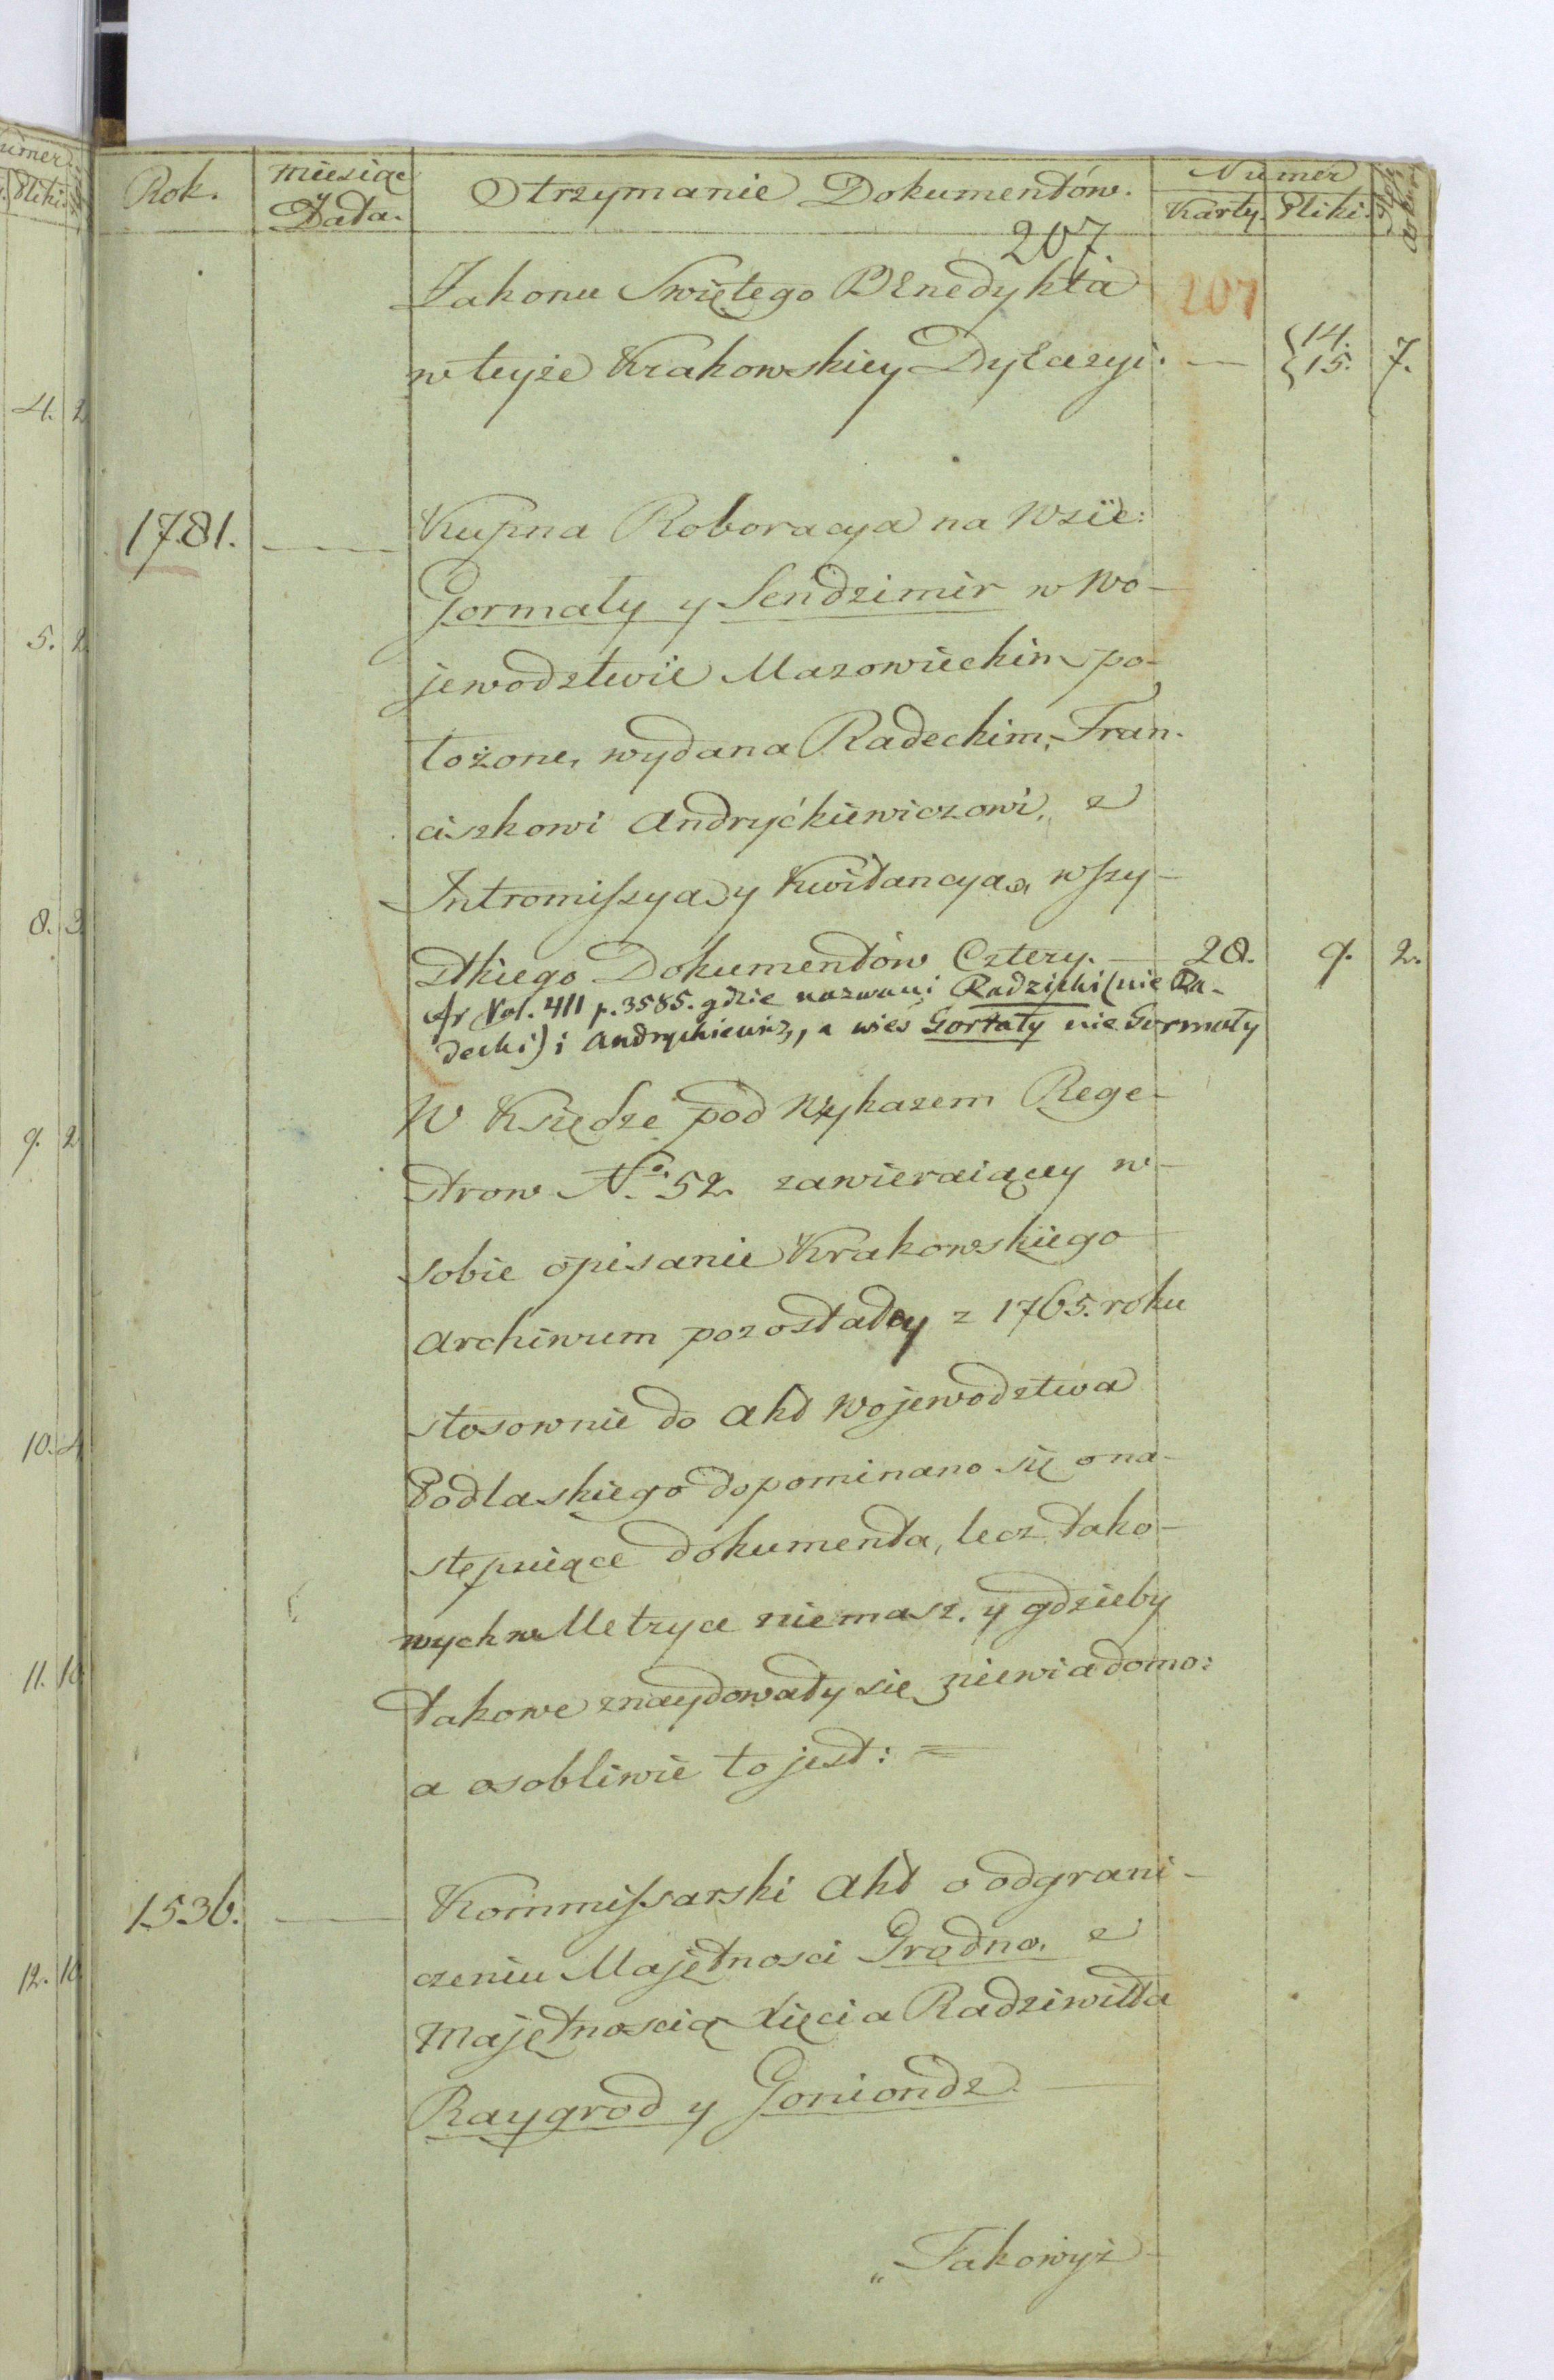 Rok. Miesiąc Otrzymanie Dokumentów. Numer
Data. Karty. Pliki.
207
Zakonu Swiętego Benedykta 207
w teyże Krakowskiey DyEcezyi. — 14. 15. 7.
1781. — Kupna Roboracya na Wsie:
Gormaty y Sendzimir w Wo-
jewodztwie Mazowieckim po-
łożone, wydana Radeckim, Fran-
ciszkowi Andryćkiewiczowi, z
Intromissyą y Kwitancyą, wszy-
stkiego Dokumentów Cztery. — 28. 9. 2.
Ar Vol. 411 p. 3585. gdzie nazwani Radziccki (nie Ra-
decki) i Andrychiewicz, a wieś Gortaty nie Gormaty
W Księdze pod Wykazem Rege-
strow No. 52. zawieraiącey w
sobie opisanie Krakowskiego
Archiwum pozostałey z 1765. roku
stosownie do Akt Wojewodztwa
Podlaskiego dopominano się o na-
stępuiące dokumenta, lecz tako-
wych w Metryce niemasz. y gdzieby
takowe znaydowały się niewiadomo:
a osobliwie to jest: =
1536. — Kommissarski Akt o odgrani-
czeniu Majętnosci Grodno. z
Majętnoscią Xięcia Radziwiłła
Raygrod y Goniondz. —
„Takowyż
umer
Pliki.
4. 2
5. 2
8. 3
9. 2
10. 4
11. 10
12. 10